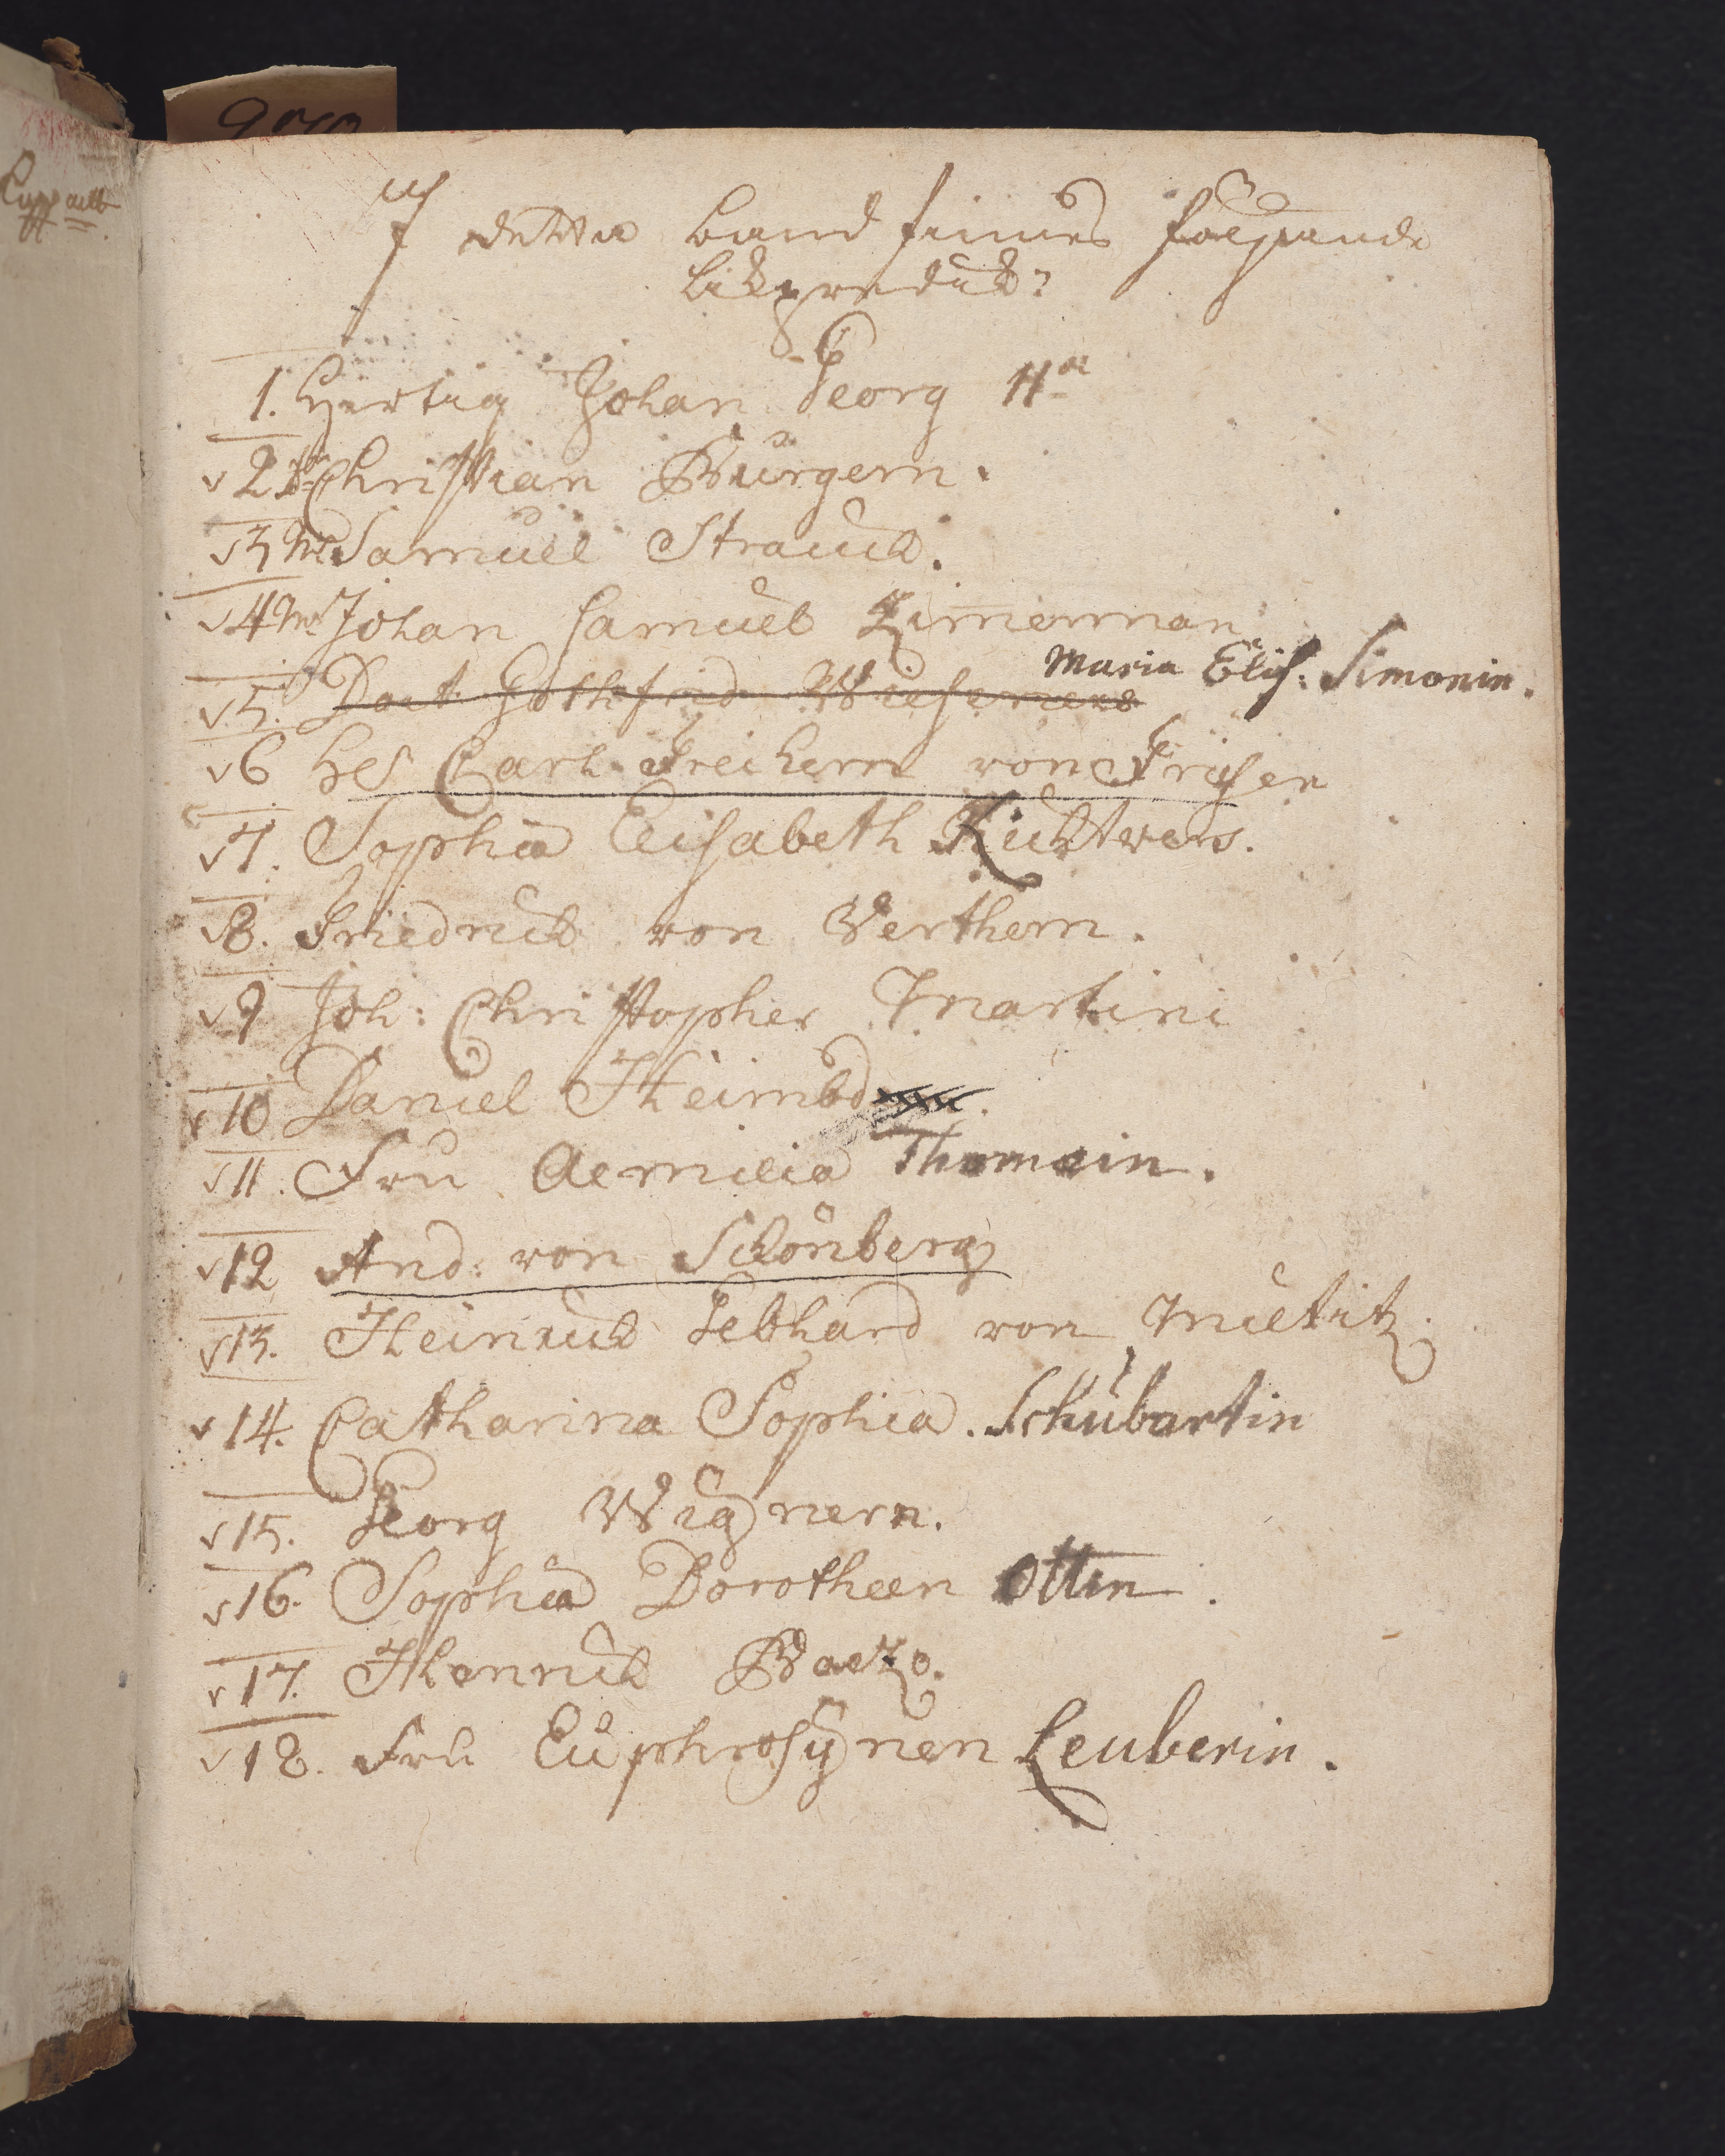 I detta band finnes följande
likpredik:
1. Hertig Johan Georg IIdi
2 Dn Christian Bürgern.
3 Mr Samuel Strauch.
4 Mr Johan Samuel Zimerman
Maria Elis: Simonin.
5. Doct. Gothfried
6 Carl Freiherr von Friesen
7. Sophia Elisabeth Richters.
8. Friedrich von Werthern.
9 Joh: Christopher Martini
10 Daniel Heimbd
11. Fru Aemilia Thomæin.
12 And: von Schönberg
13. Heinrich Gebhard von Miltitz.
14. Catharina Sophia. Schübartin
15. Georg Wagnern.
16. Sophia Dorotheen Ottin.
17. Henrich
18. Fru Euphrosÿnen Leuberin.